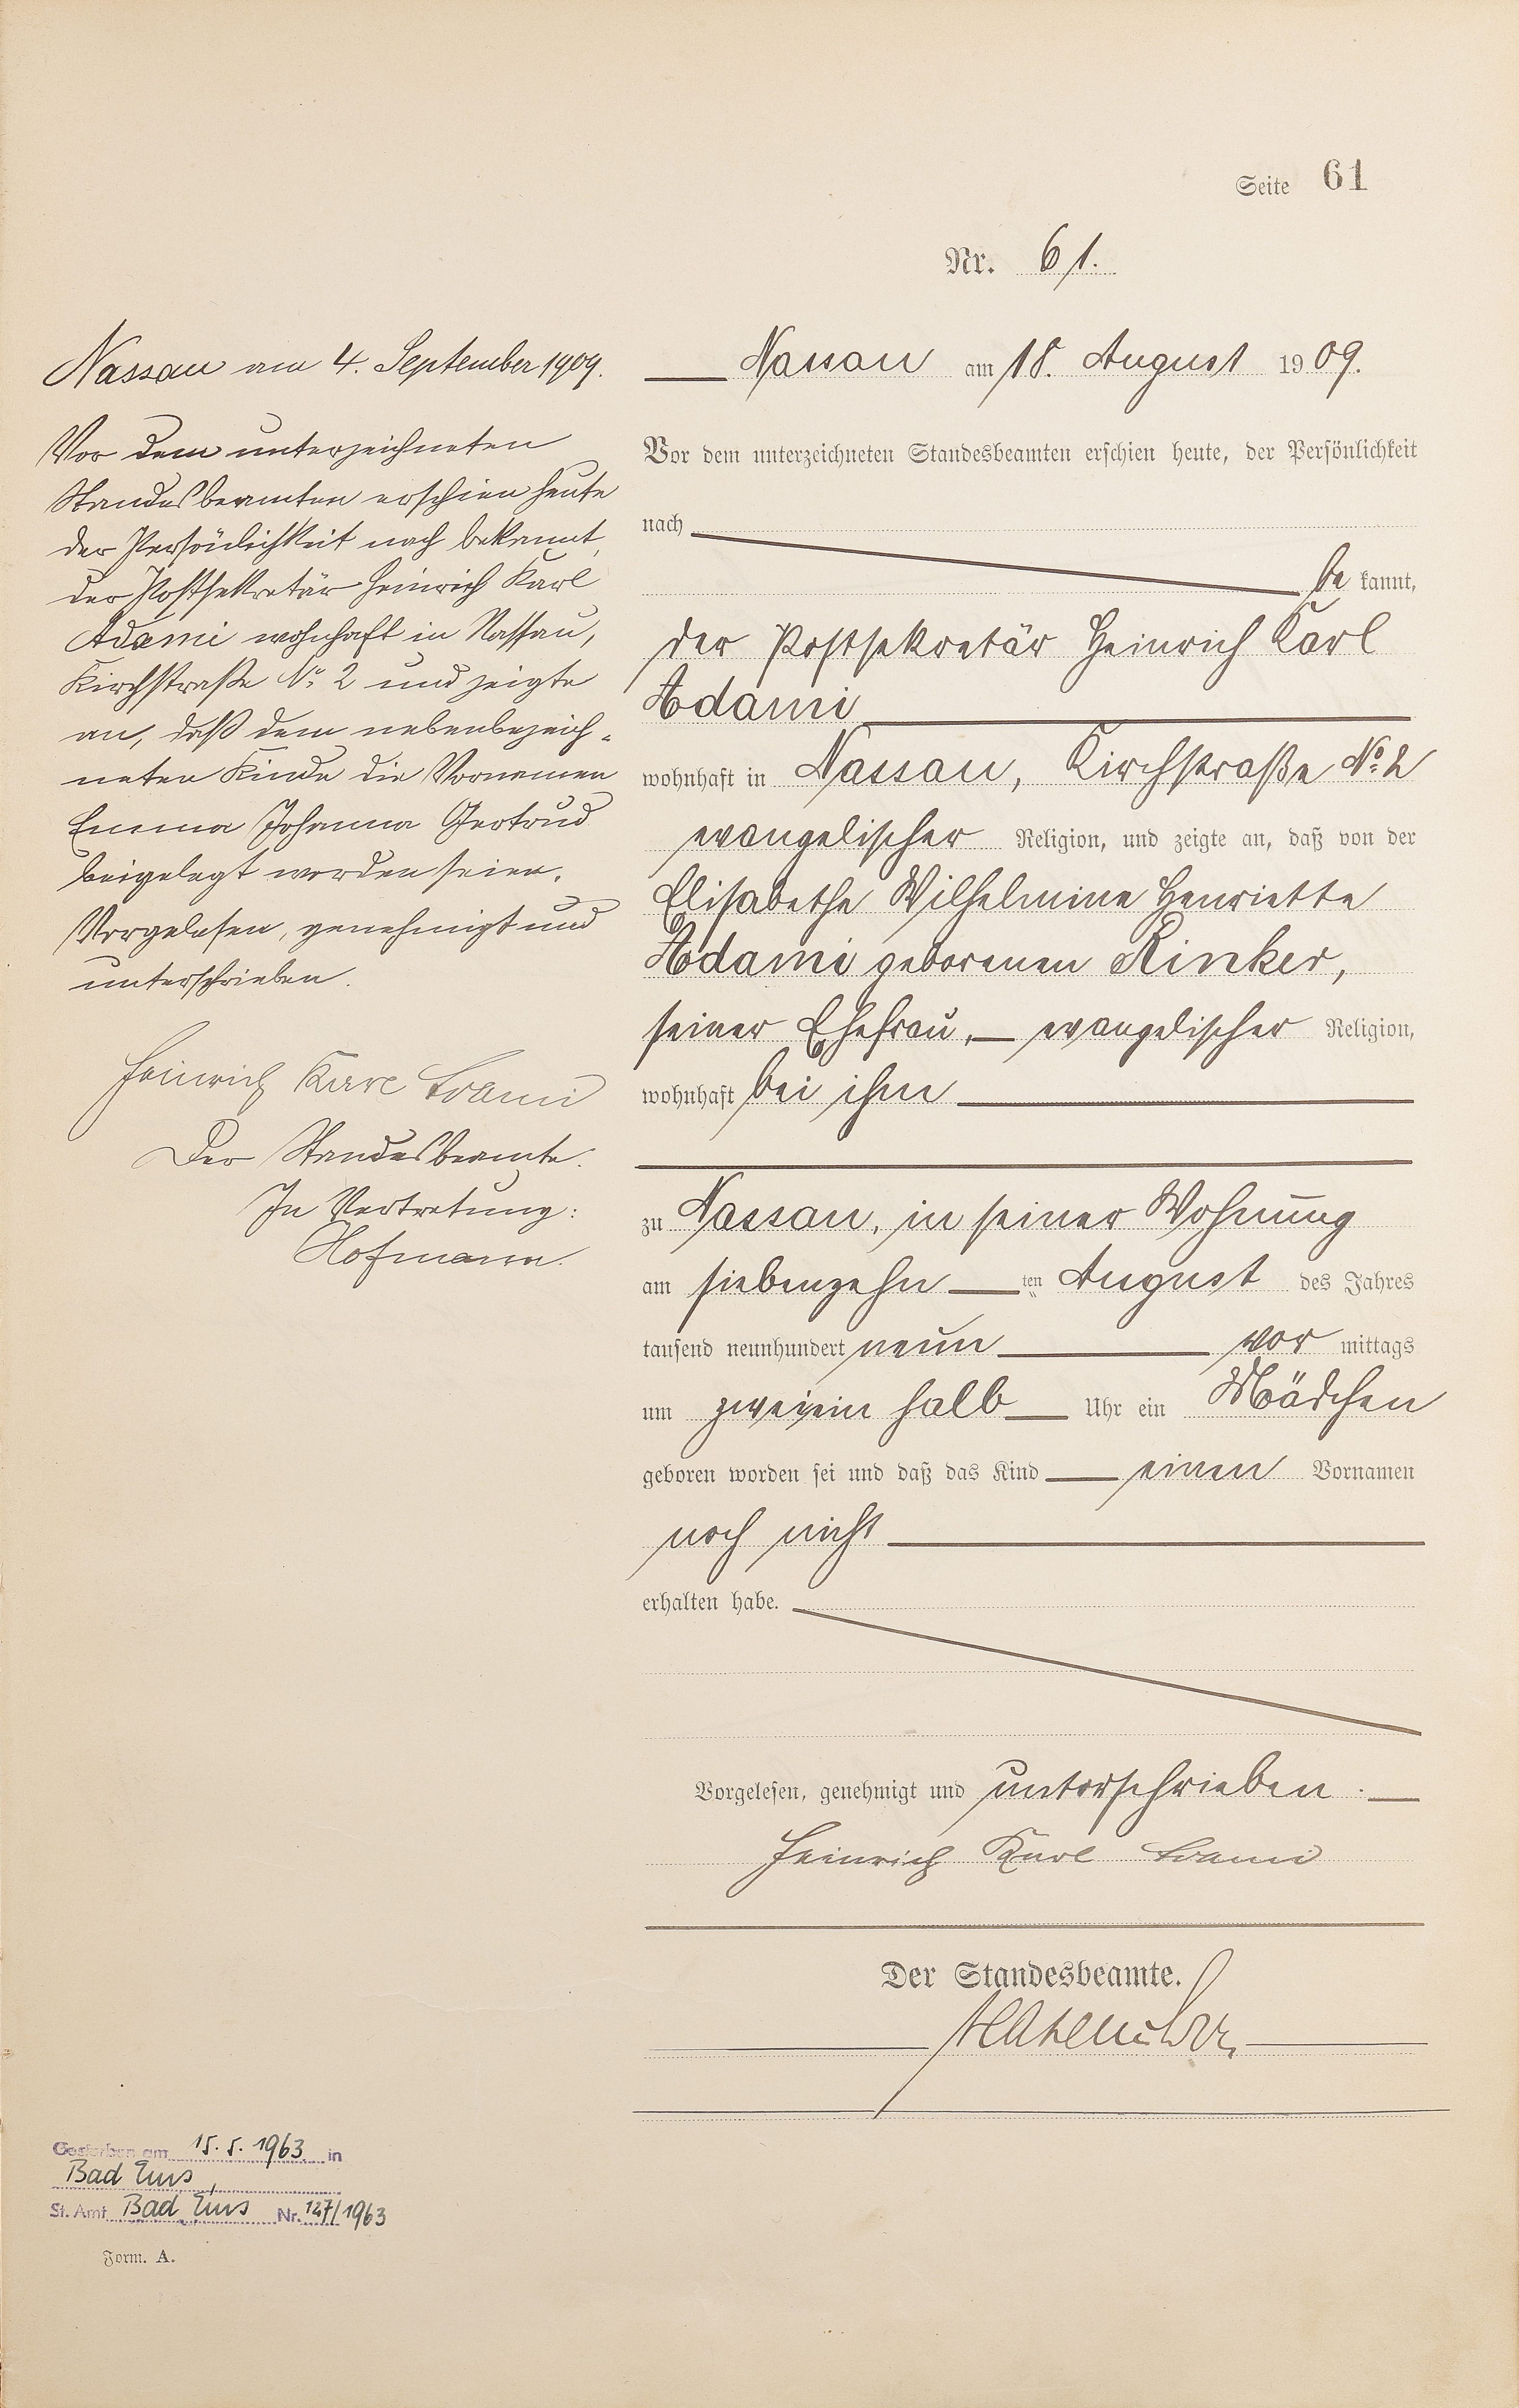 Seite 61
Nr. 61.
Nassau am 4. September 1909.
Vor dem unterzeichneten
Standesbeamten erschien heute
der Persönlichkeit nach bekannt,
der Postsekretär Heinrich Karl
Adami wohnhaft in Nassau,
Kirchstraße No. 2 und zeigte
an, daß dem nebenbezeich-
neten Kinde die Vornamen
Emma Johanna Gertrud
beigelegt worden seien.
Vorgelesen, genehmigt und
unterschrieben.
Heinrich Karl Adami
Der Standesbeamte.
In Vertretung:
Hofmann.
Nassau am 18. August 1909.
Vor dem unterzeichneten Standesbeamten erschien heute, der Persönlichkeit
nach
be kannt,
der Postsekretär Heinrich Karl
Adami
wohnhaft in Nassau, Kirchstraße No. 2
evangelischer Religion, und zeigte an, daß von der
Elisabethe Wilhelmine Henriette
Adami geborenen Rinker,
seiner Ehefrau, evangelischer Religion,
wohnhaft bei ihm
zu Nassau, in seiner Wohnung
am siebenzehn ten August des Jahres
tausend neunhundert neun vor mittags
um zweiein halb Uhr ein Mädchen
geboren worden sei und daß das Kind einen Vornamen
noch nicht
erhalten habe.
Vorgelesen, genehmigt und unterschrieben.
Heinrich Karl Adami
Der Standesbeamte.
Gestorben am 15.5.1963 in
Bad Ems
St. Amt Bad Ems Nr. 127/1963
Form. A.